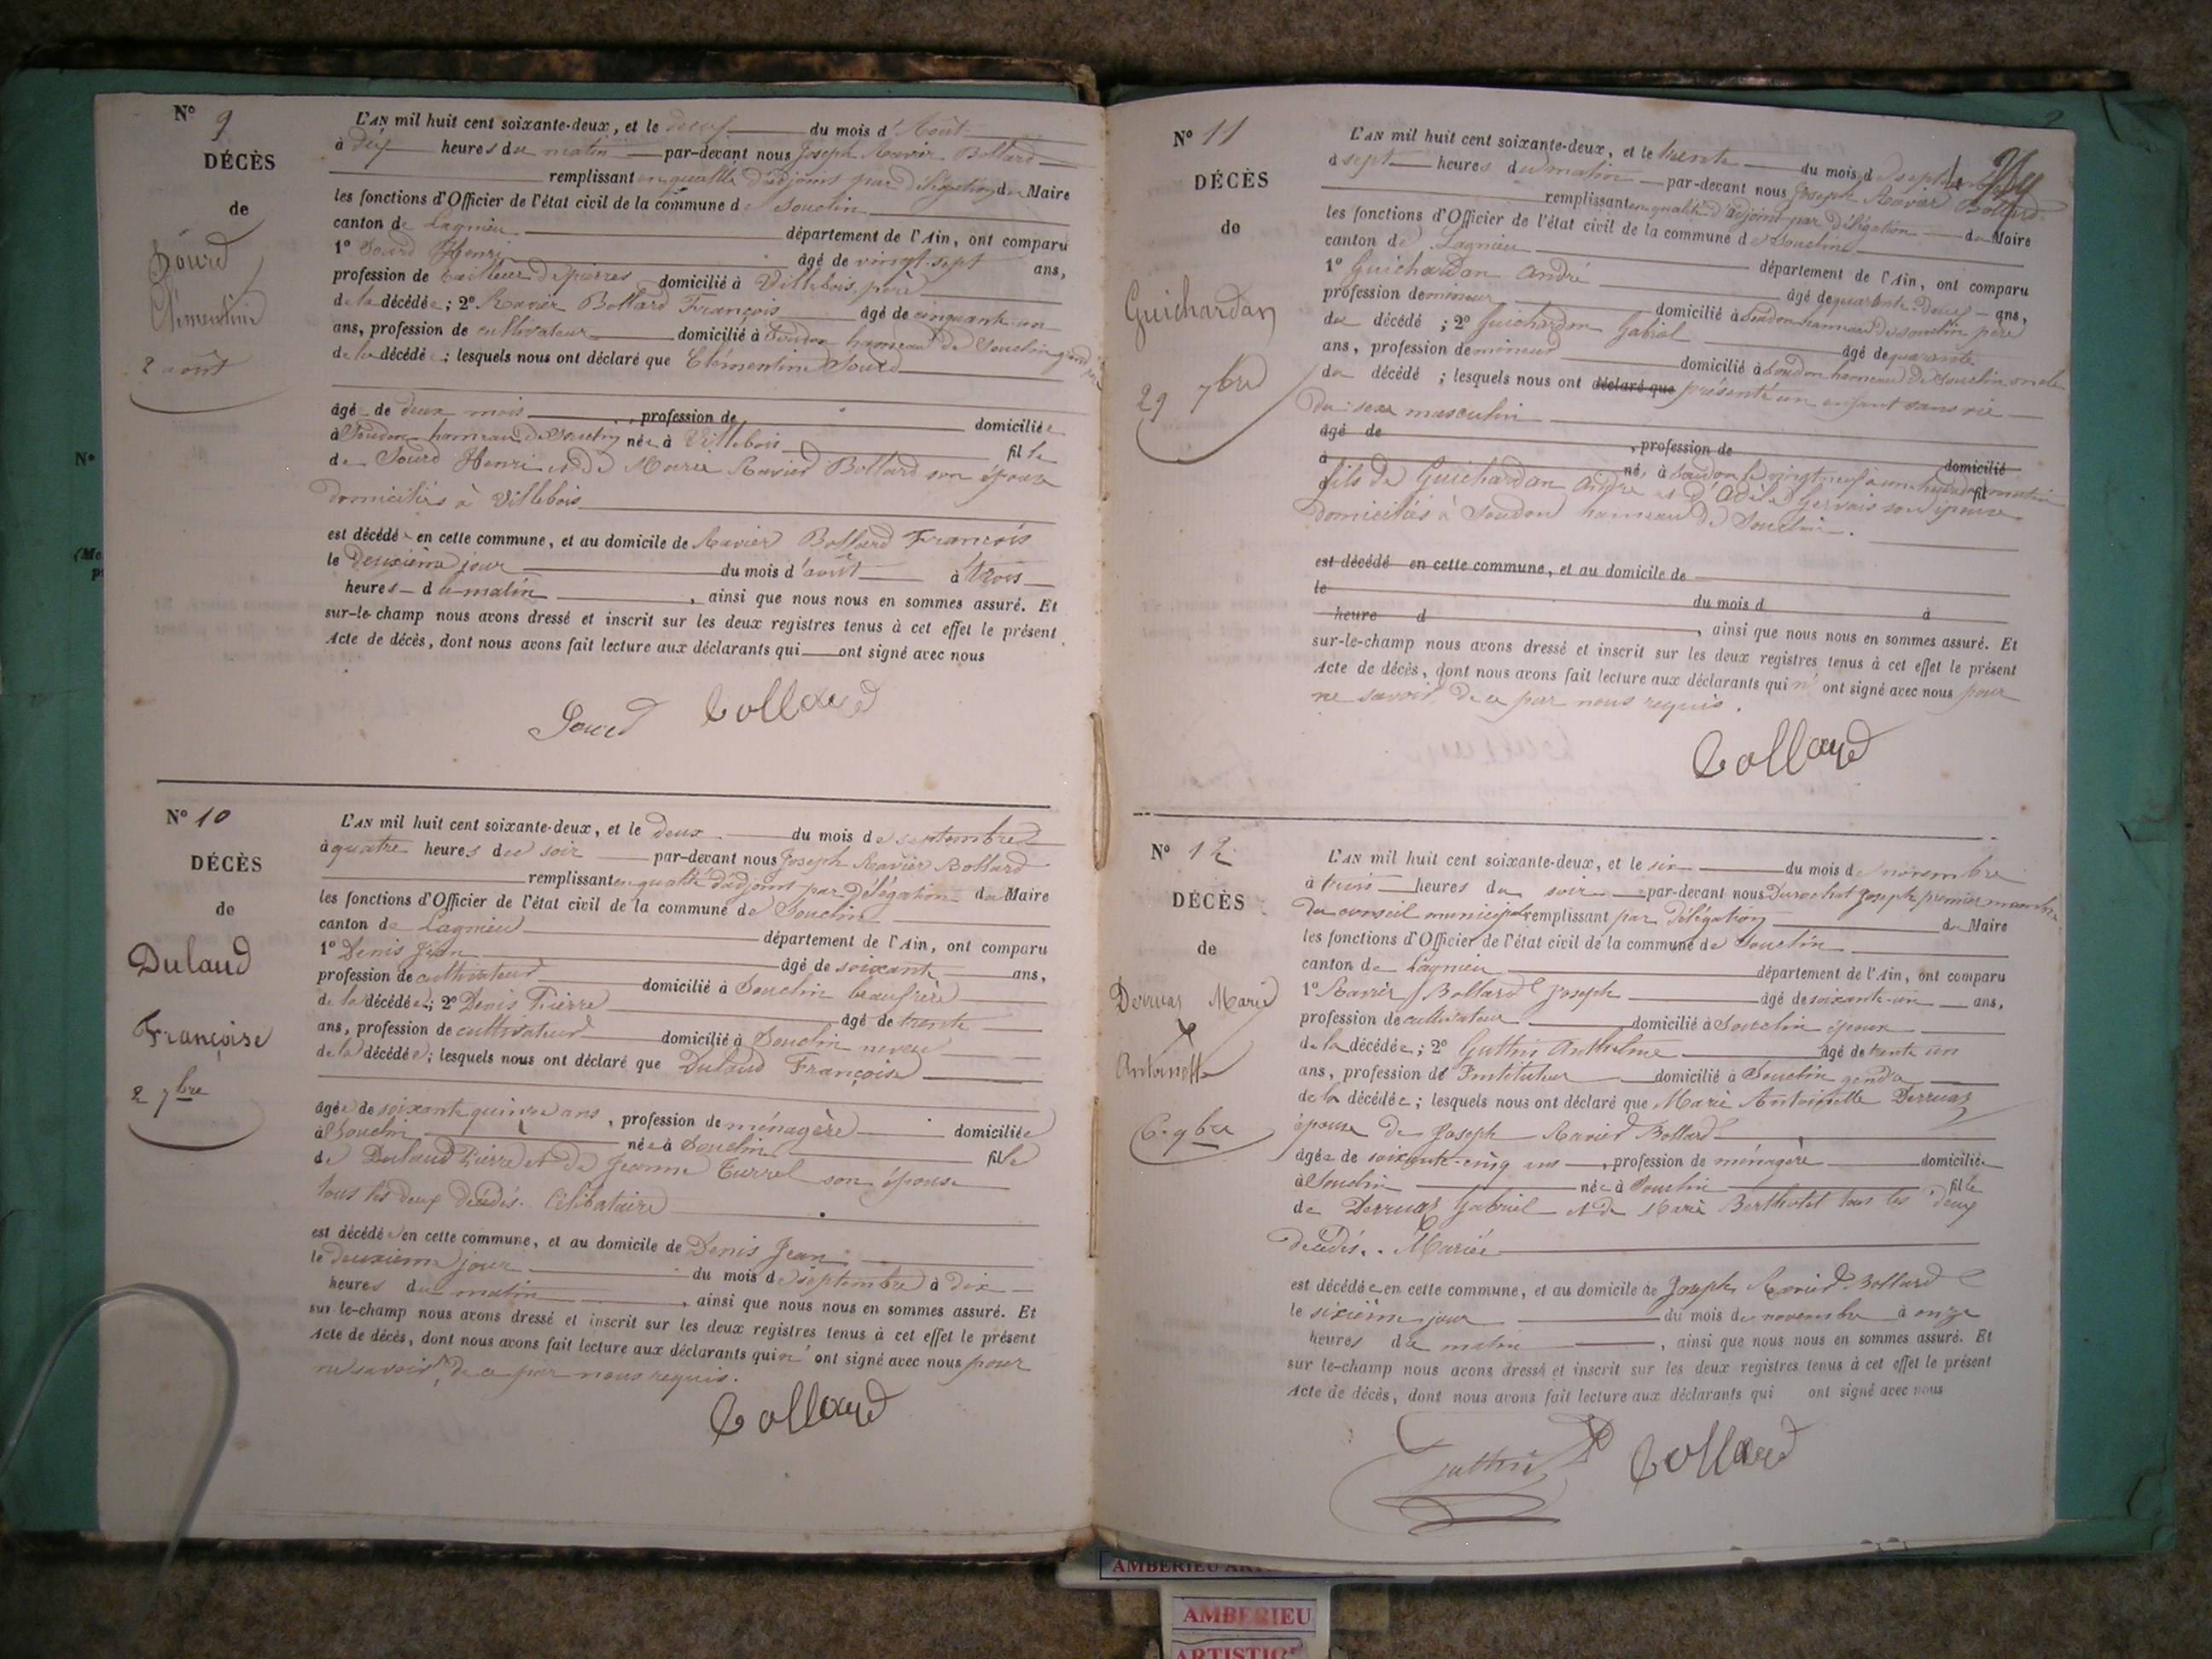 N° 9
DÉCÈS
de
Sourd
Clémentine
2 août
L'AN mil huit cent soixante-deux, et le deux du mois d'Août
à dix heures du matin par-devant nous Joseph Ravier Bollard
remplissant en qualité d'adjoint par délégation du Maire
les fonctions d'Officier de l'état civil de la commune de Souclin
canton de Lagnieu département de l'Ain, ont comparu
1° Sourd Henri âgé de vingt-sept ans,
profession de tailleur de pierres domicilié à Villebois, père
de la décédée ; 2° Ravier Bollard François âgé de cinquante-un
ans, profession de cultivateur domicilié à Soudon hameau de Souclin grand père
de la décédée ; lesquels nous ont déclaré que Clémentine Sourd
âgé de deux mois, profession de domiciliée
à Soudon hameau de Souclin née à Villebois fille
de Sourd Henri et de Marie Ravier Bollard son épouse
domiciliés à Villebois
est décédée en cette commune, et au domicile de Ravier Bollard François
le deuxième jour du mois d'août à trois
heures du matin, ainsi que nous nous en sommes assuré. Et
sur-le-champ nous avons dressé et inscrit sur les deux registres tenus à cet effet le présent
Acte de décès, dont nous avons fait lecture aux déclarants qui ont signé avec nous
Sourd Bollard
N° 10
DÉCÈS
de
Dulaud
Françoise
2 7bre
L'AN mil huit cent soixante-deux, et le deux du mois de septembre
à quatre heures du soir par-devant nous Joseph Ravier Bollard
remplissant en qualité d'adjoint par délégation du Maire
les fonctions d'Officier de l'état civil de la commune de Souclin
canton de Lagnieu département de l'Ain, ont comparu
1° Denis Jean âgé de soixante ans,
profession de cultivateur domicilié à Souclin beaufrère
de la décédée ; 2° Denis Pierre âgé de trente
ans, profession de cultivateur domicilié à Souclin neveu
de la décédée ; lesquels nous ont déclaré que Dulaud Françoise
âgée de soixante quinze ans, profession de ménagère domiciliée
à Souclin née à Souclin fille
de Dulaud Pierre et de Jeanne Turrel son épouse
tous les deux décédés. Célibataire
est décédée en cette commune, et au domicile de Denis Jean
le deuxième jour du mois de septembre à dix
heures du matin, ainsi que nous nous en sommes assuré. Et
sur-le-champ nous avons dressé et inscrit sur les deux registres tenus à cet effet le présent
Acte de décès, dont nous avons fait lecture aux déclarants qui n'ont signé avec nous pour
ne savoir, de ce par nous requis.
Bollard
N° 11
DÉCÈS
de
Guichardan
29 7bre
L'AN mil huit cent soixante-deux, et le trente du mois de septembre
à sept heures du matin par-devant nous Joseph Ravier Bollard
remplissant en qualité d'adjoint par délégation du Maire
les fonctions d'Officier de l'état civil de la commune de Souclin
canton de Lagnieu département de l'Ain, ont comparu
1° Guichardan André âgé de quarante-deux ans,
profession de mineur domicilié à Soudon hameau de Souclin père
du décédé ; 2° Guichardon Gabriel âgé de quarante
ans, profession de mineur domicilié à Soudon hameau de Souclin oncle
du décédé ; lesquels nous ont déclaré que présenté un enfant sans vie
du sexe masculin
âgé de, profession de domicilié
à né à Soudon le vingt neuf à une heure du matin fil
fils de Guichardan André et d'Adèle Gervais son épouse
domiciliés à Soudon hameau de Souclin.
est décédé en cette commune, et au domicile de
le du mois d à
heure d, ainsi que nous nous en sommes assuré. Et
sur-le-champ nous avons dressé et inscrit sur les deux registres tenus à cet effet le présent
Acte de décès, dont nous avons fait lecture aux déclarants qui n'ont signé avec nous pour
ne savoir, de ce par nous requis.
Bollard
N° 12
DÉCÈS
de
Derruaz Marie
Antoinette
6 9bre
L'AN mil huit cent soixante-deux, et le six du mois de novembre
à trois heures du soir par-devant nous Durochat Joseph premier membre
du conseil municipal remplissant par délégation du Maire
les fonctions d'Officier de l'état civil de la commune de Souclin
canton de Lagnieu département de l'Ain, ont comparu
1° Ravier Bollard Joseph âgé de soixante-un ans,
profession de cultivateur domicilié à Souclin époux
de la décédée ; 2° Guttin Anthelme âgé de trente un
ans, profession d'Instituteur domicilié à Souclin gendre
de la décédée ; lesquels nous ont déclaré que Marie Antoinette Derruaz
épouse de Joseph Ravier Bollard
âgée de soixante-cinq ans, profession de ménagère domiciliée
à Souclin née à Souclin fille
de Derruaz Gabriel et de Marie Bertholet tous les deux
décédés. Mariée
est décédée en cette commune, et au domicile de Joseph Ravier Bollard
le sixième jour du mois de novembre à onze
heures du matin, ainsi que nous nous en sommes assuré. Et
sur le-champ nous avons dressé et inscrit sur les deux registres tenus à cet effet le présent
Acte de décès, dont nous avons fait lecture aux déclarants qui ont signé avec nous
Guttin Bollard
AMBERIEU
AMBERIEU